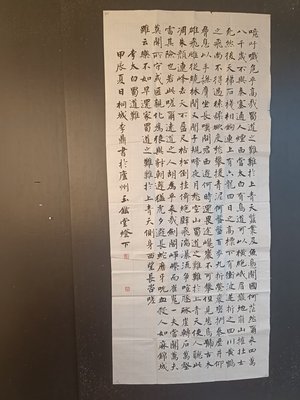 噫吁嚱危乎高哉蜀道之難難於上青天蠶叢及魚鳧開國何茫然爾來四萬
八千歲不與秦塞通人煙西當太白有鳥道可以橫絕峨眉巔地崩山摧壯士
死然後天梯石棧相鉤連上有六龍回日之高標下有衝波逆折之回川黃鶴
之飛尚不得過猿猱欲度愁攀援青泥何盤盤百步九折縈巖巒捫參歷井仰
脅息以手撫膺坐長嘆問君西遊何時還畏途巉巖不可攀但見悲鳥號古木
雄飛雌從繞林間又聞子規啼夜月愁空山蜀道之難難於上青天使人聽此
凋朱顏連峰去天不盈尺枯松倒挂倚絕壁飛湍瀑流爭喧豗砯崖轉石萬壑
雷其險也若此嗟爾遠道之人胡為乎來哉劍閣崢嶸而崔嵬一夫當關萬夫
莫開所守或匪親化為狼與豺朝避猛虎夕避長蛇磨牙吮血殺人如麻錦城
雖云樂不如早還家蜀道之難難於上青天側身西望長咨嗟
李太白蜀道難
甲辰夏日桐城李鼎書於廬州玉堂燈下